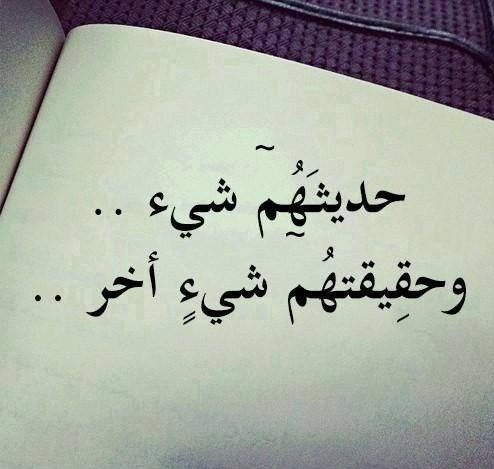 حديثَهُِم شيء ..
وحقِيقتهُم شيءٍ أخر ..